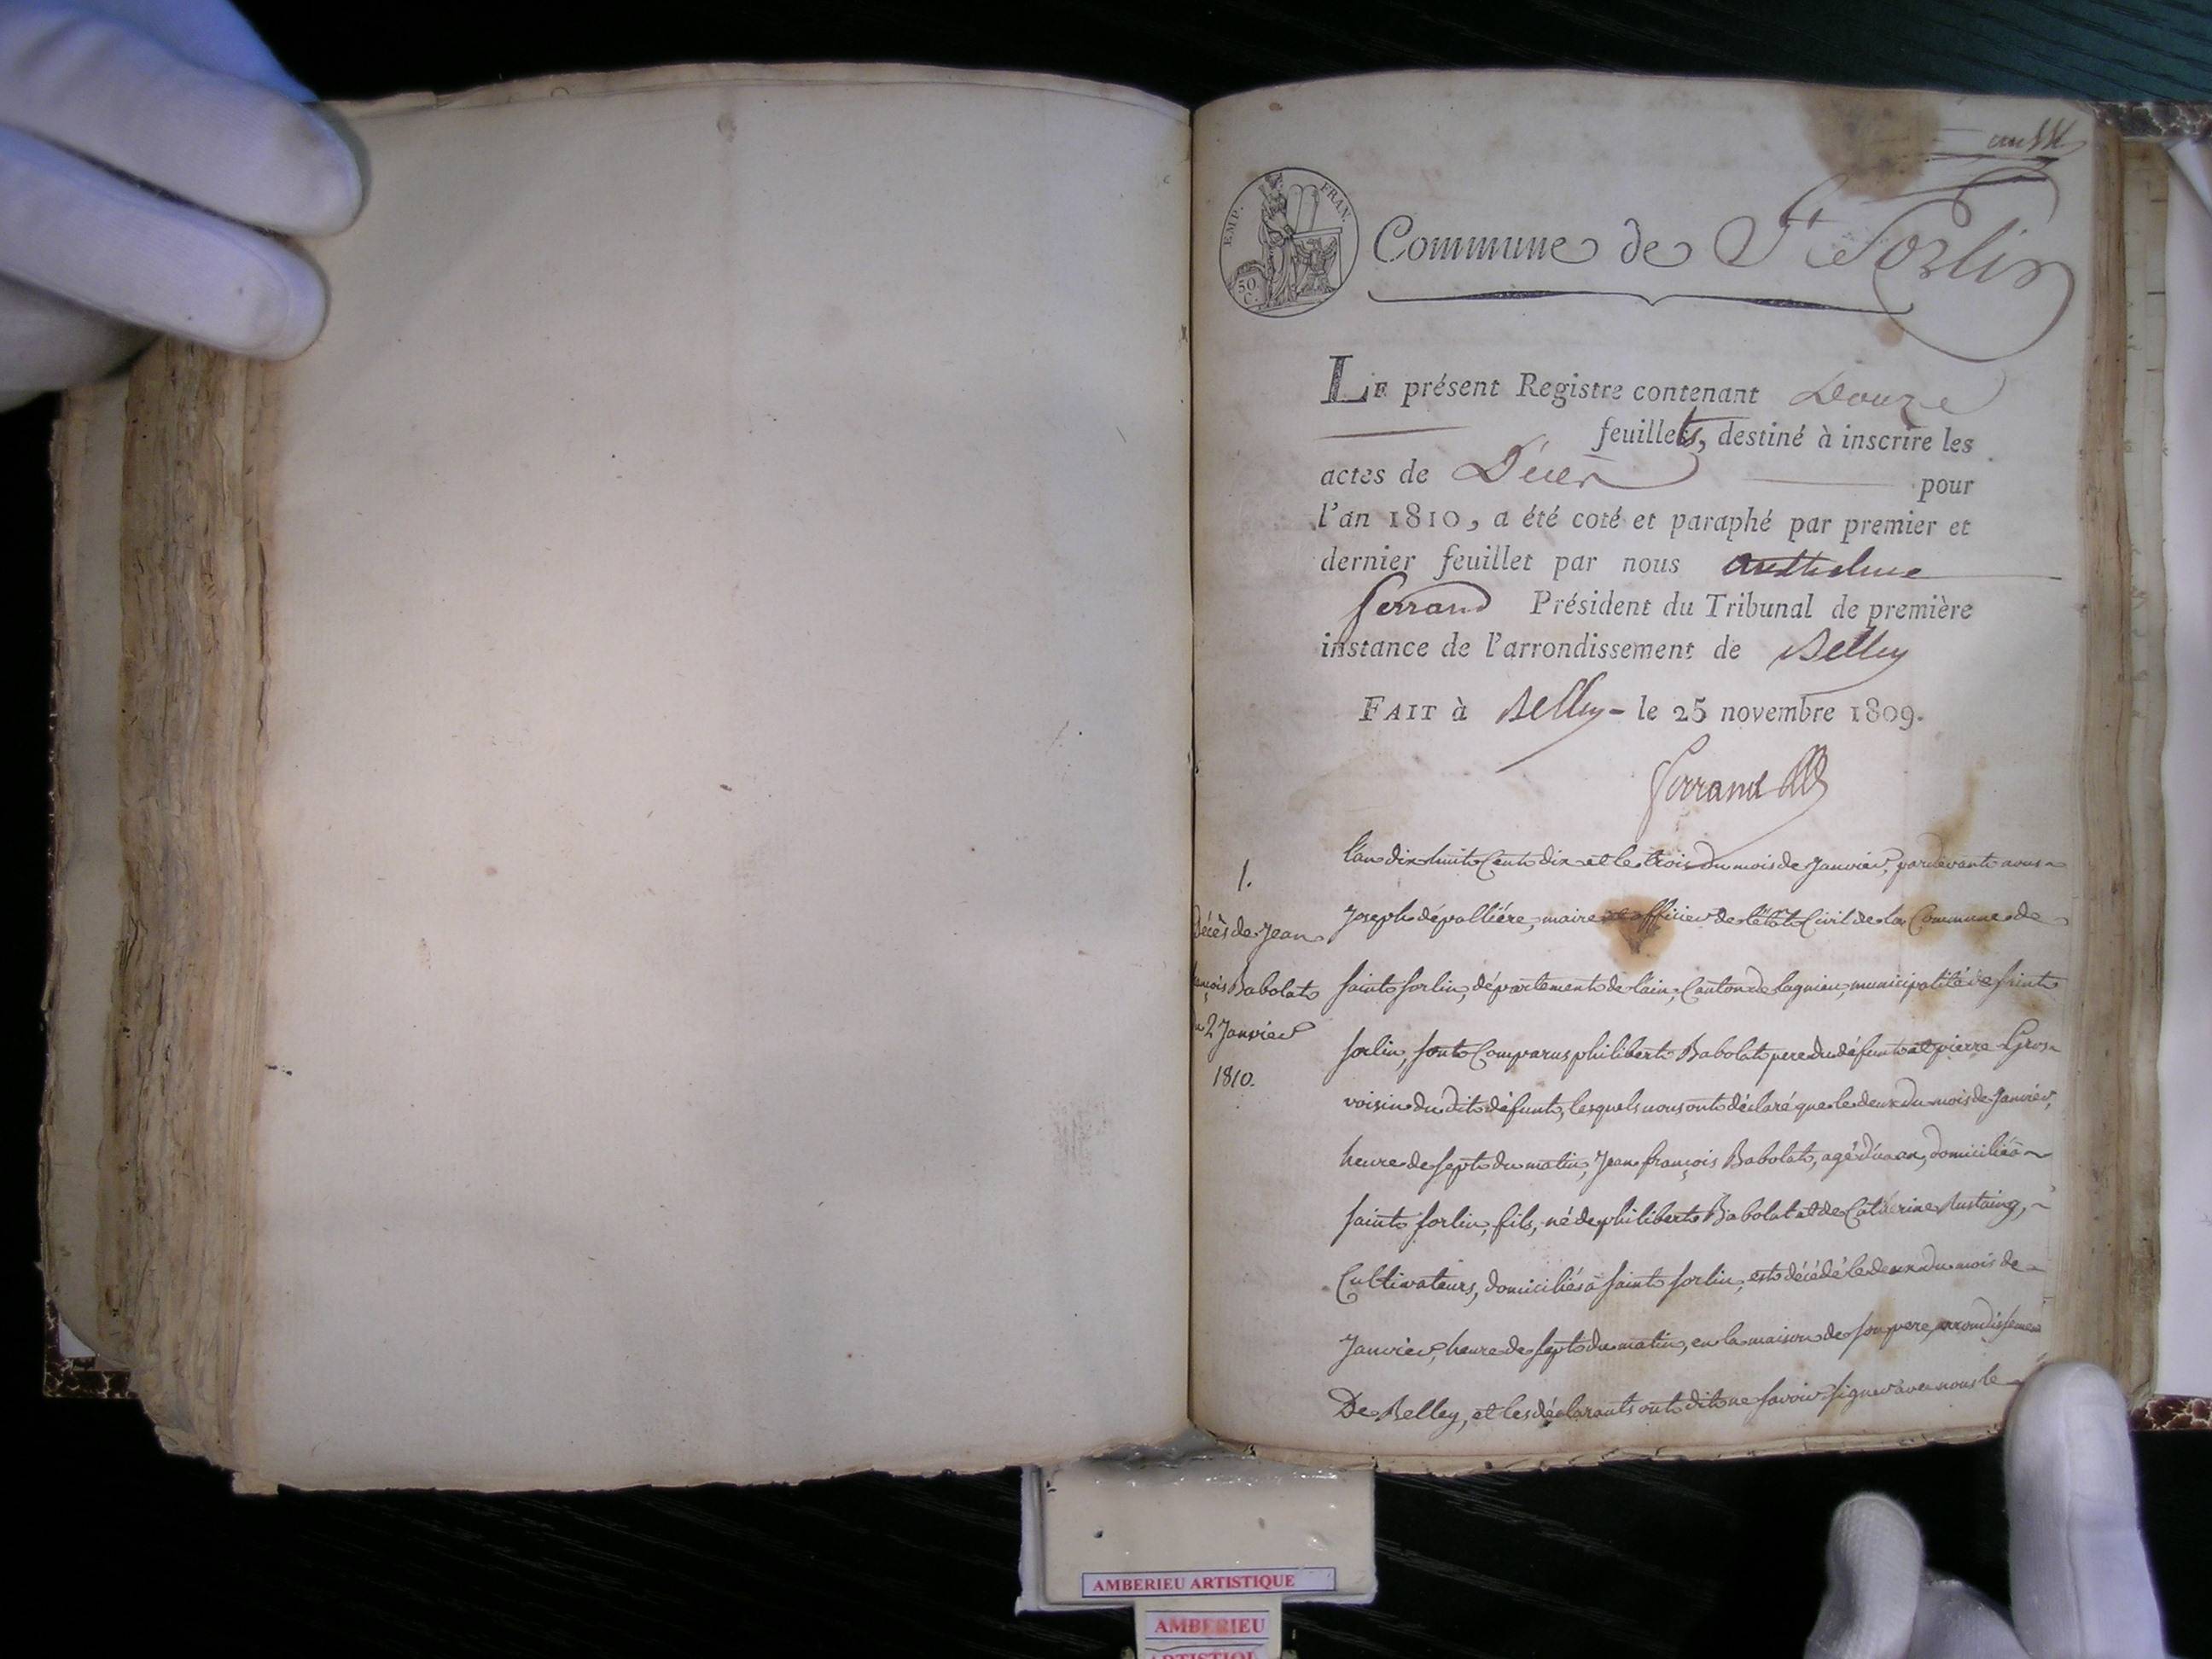 EMP. FRAN.
50 C.
Commune de St Sorlin
LE présent Registre contenant Douze
feuillets, destiné à inscrire les
actes de Décès pour
l'an 1810, a été coté et paraphé par premier et
dernier feuillet par nous Anthelme
Ferrand Président du Tribunal de première
instance de l'arrondissement de Belley
FAIT à Belley - le 25 novembre 1809.
Ferrand
1.
Décès de Jean
françois Babolat
du 2 Janvier
1810.
l'an dix huit Cent dix et le trois du mois de Janvier, pardevant nous
Joseph dépollière, maire et officier de l'état Civil de la Commune de
saint sorlin, département de l'ain, Canton de lagnieu, municipalité de saint
sorlin, sont Comparus philibert Babolat pere du défunt et pierre Gros
voisin du dit défunt, lesquels nous ont déclaré que le deux du mois de Janvier,
heure de sept du matin, Jean françois Babolat, agé d'un an, domicilié à
saint sorlin, fils, né de philibert Babolat et de Catherine Rustaing,
Cultivateurs, domiciliés à saint sorlin, est décédé le deux du mois de
Janvier, heure de sept du matin, en la maison de son pere, arrondissement
De Belley, et les déclarants ont dit ne savoir signer avec nous le
AMBERIEU ARTISTIQUE
AMBERIEU
ARTISTIQUE